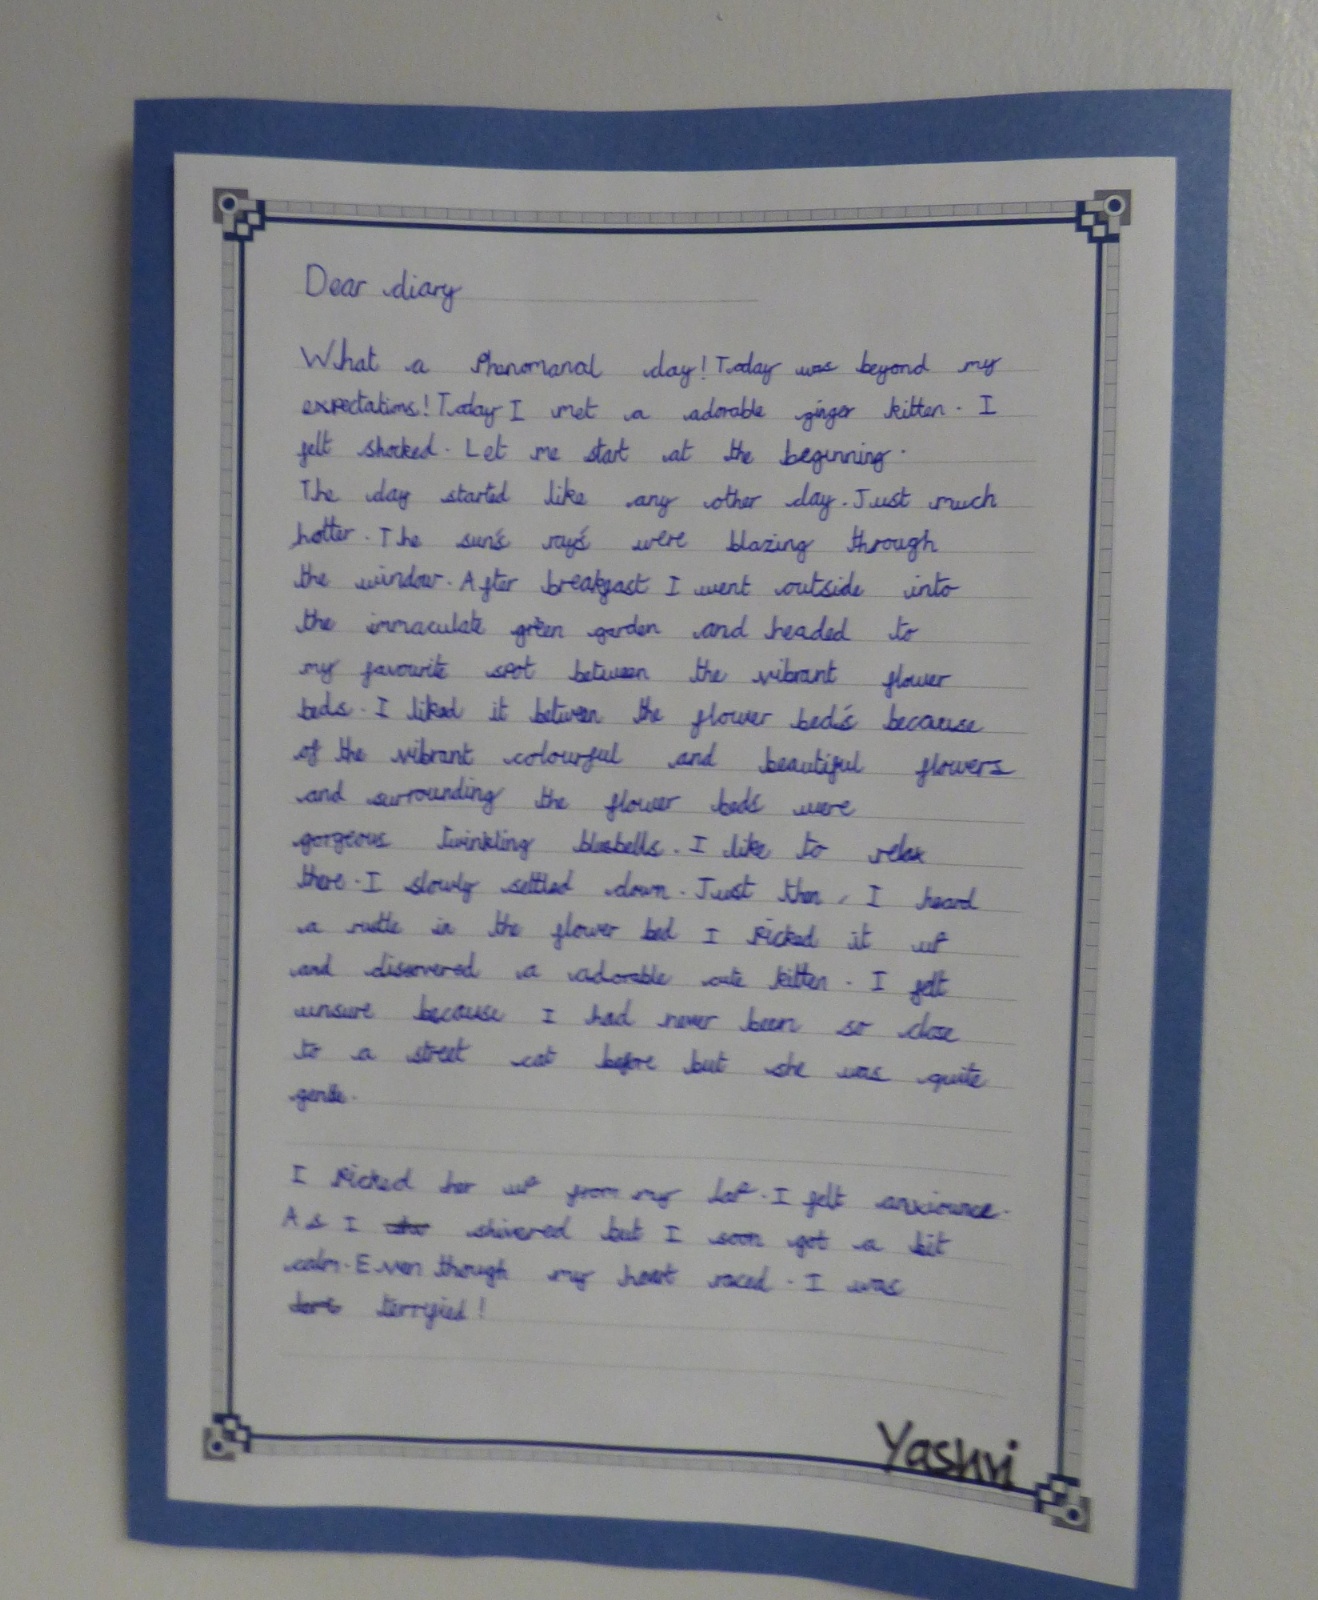 Dear diary
What a Phenomanal day! Today was beyond my
expectations! Today I met a adorable ginger kitten. I
felt shocked. Let me start at the beginning.
The day started like any other day. Just much
hotter. The sun's ray's were blazing through
the window. After breakfast I went outside into
the immaculate green garden and headed to
my favourite spot between the vibrant flower
beds. I liked it between the flower bed's because
of the vibrant colourful and beautiful flowers
and surrounding the flower beds were
gorgeous twinkling bluebells. I like to relax
there. I slowly settled down. Just then, I heard
a rustle in the flower bed I picked it up
and discovered a adorable cute kitten. I felt
unsure because I had never been so close
to a street cat before but she was quite
gentle.
I picked her up from my lap. I felt
As I shivered but I soon got a bit
calm. Even though my heart raced. I was
terryfied!
Yashvi